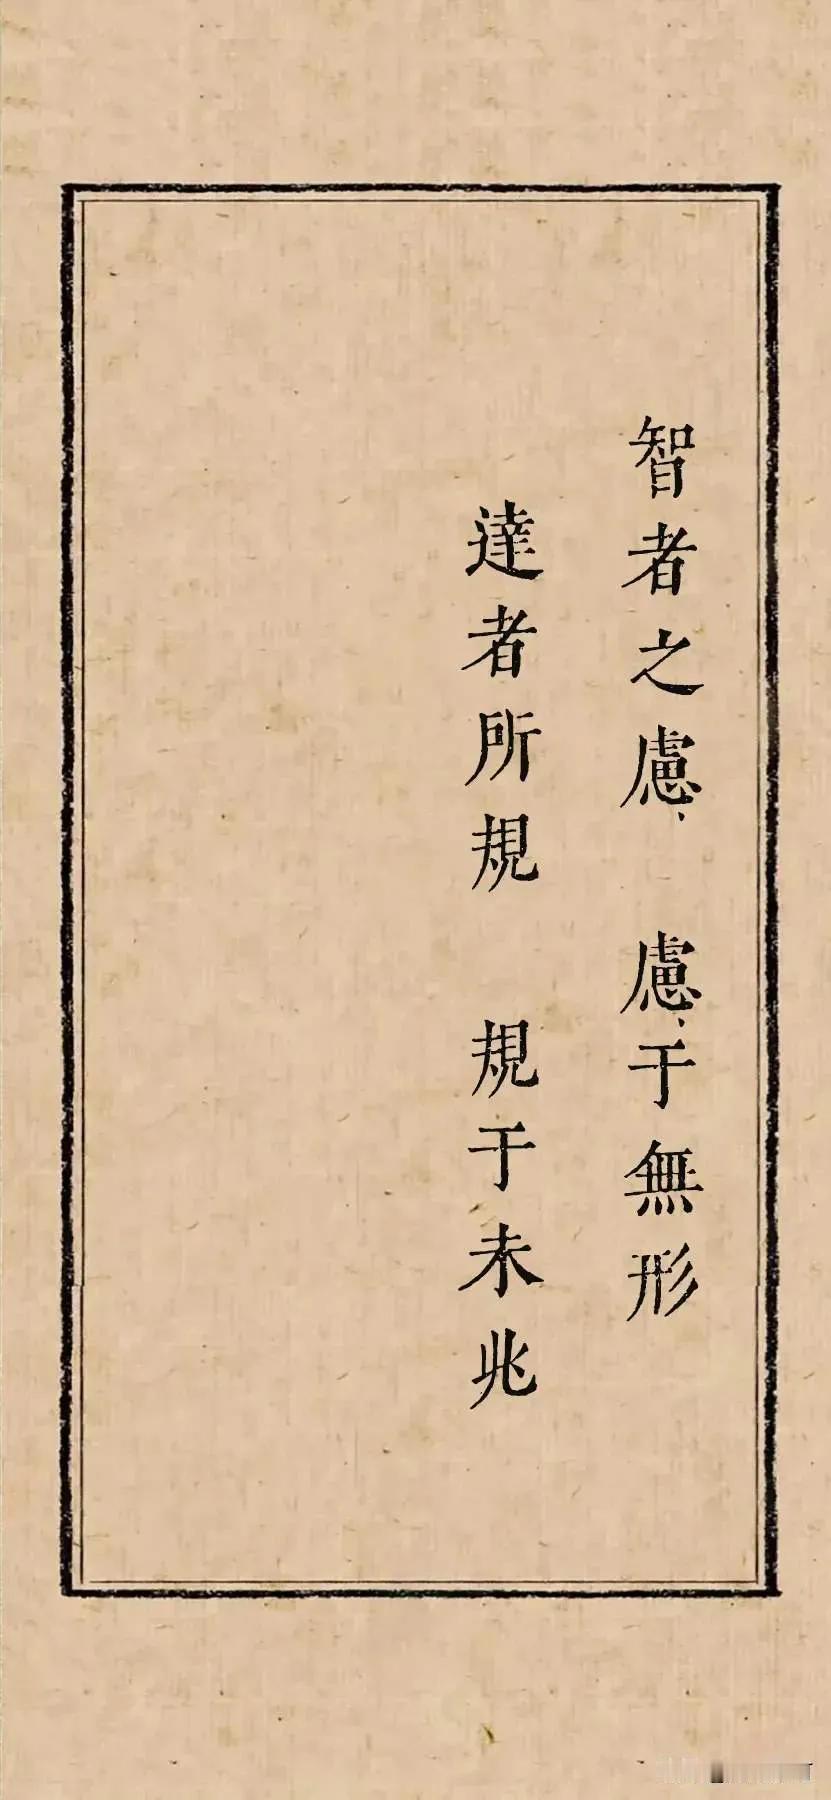 智者之慮 慮于無形
達者所規 規于未兆